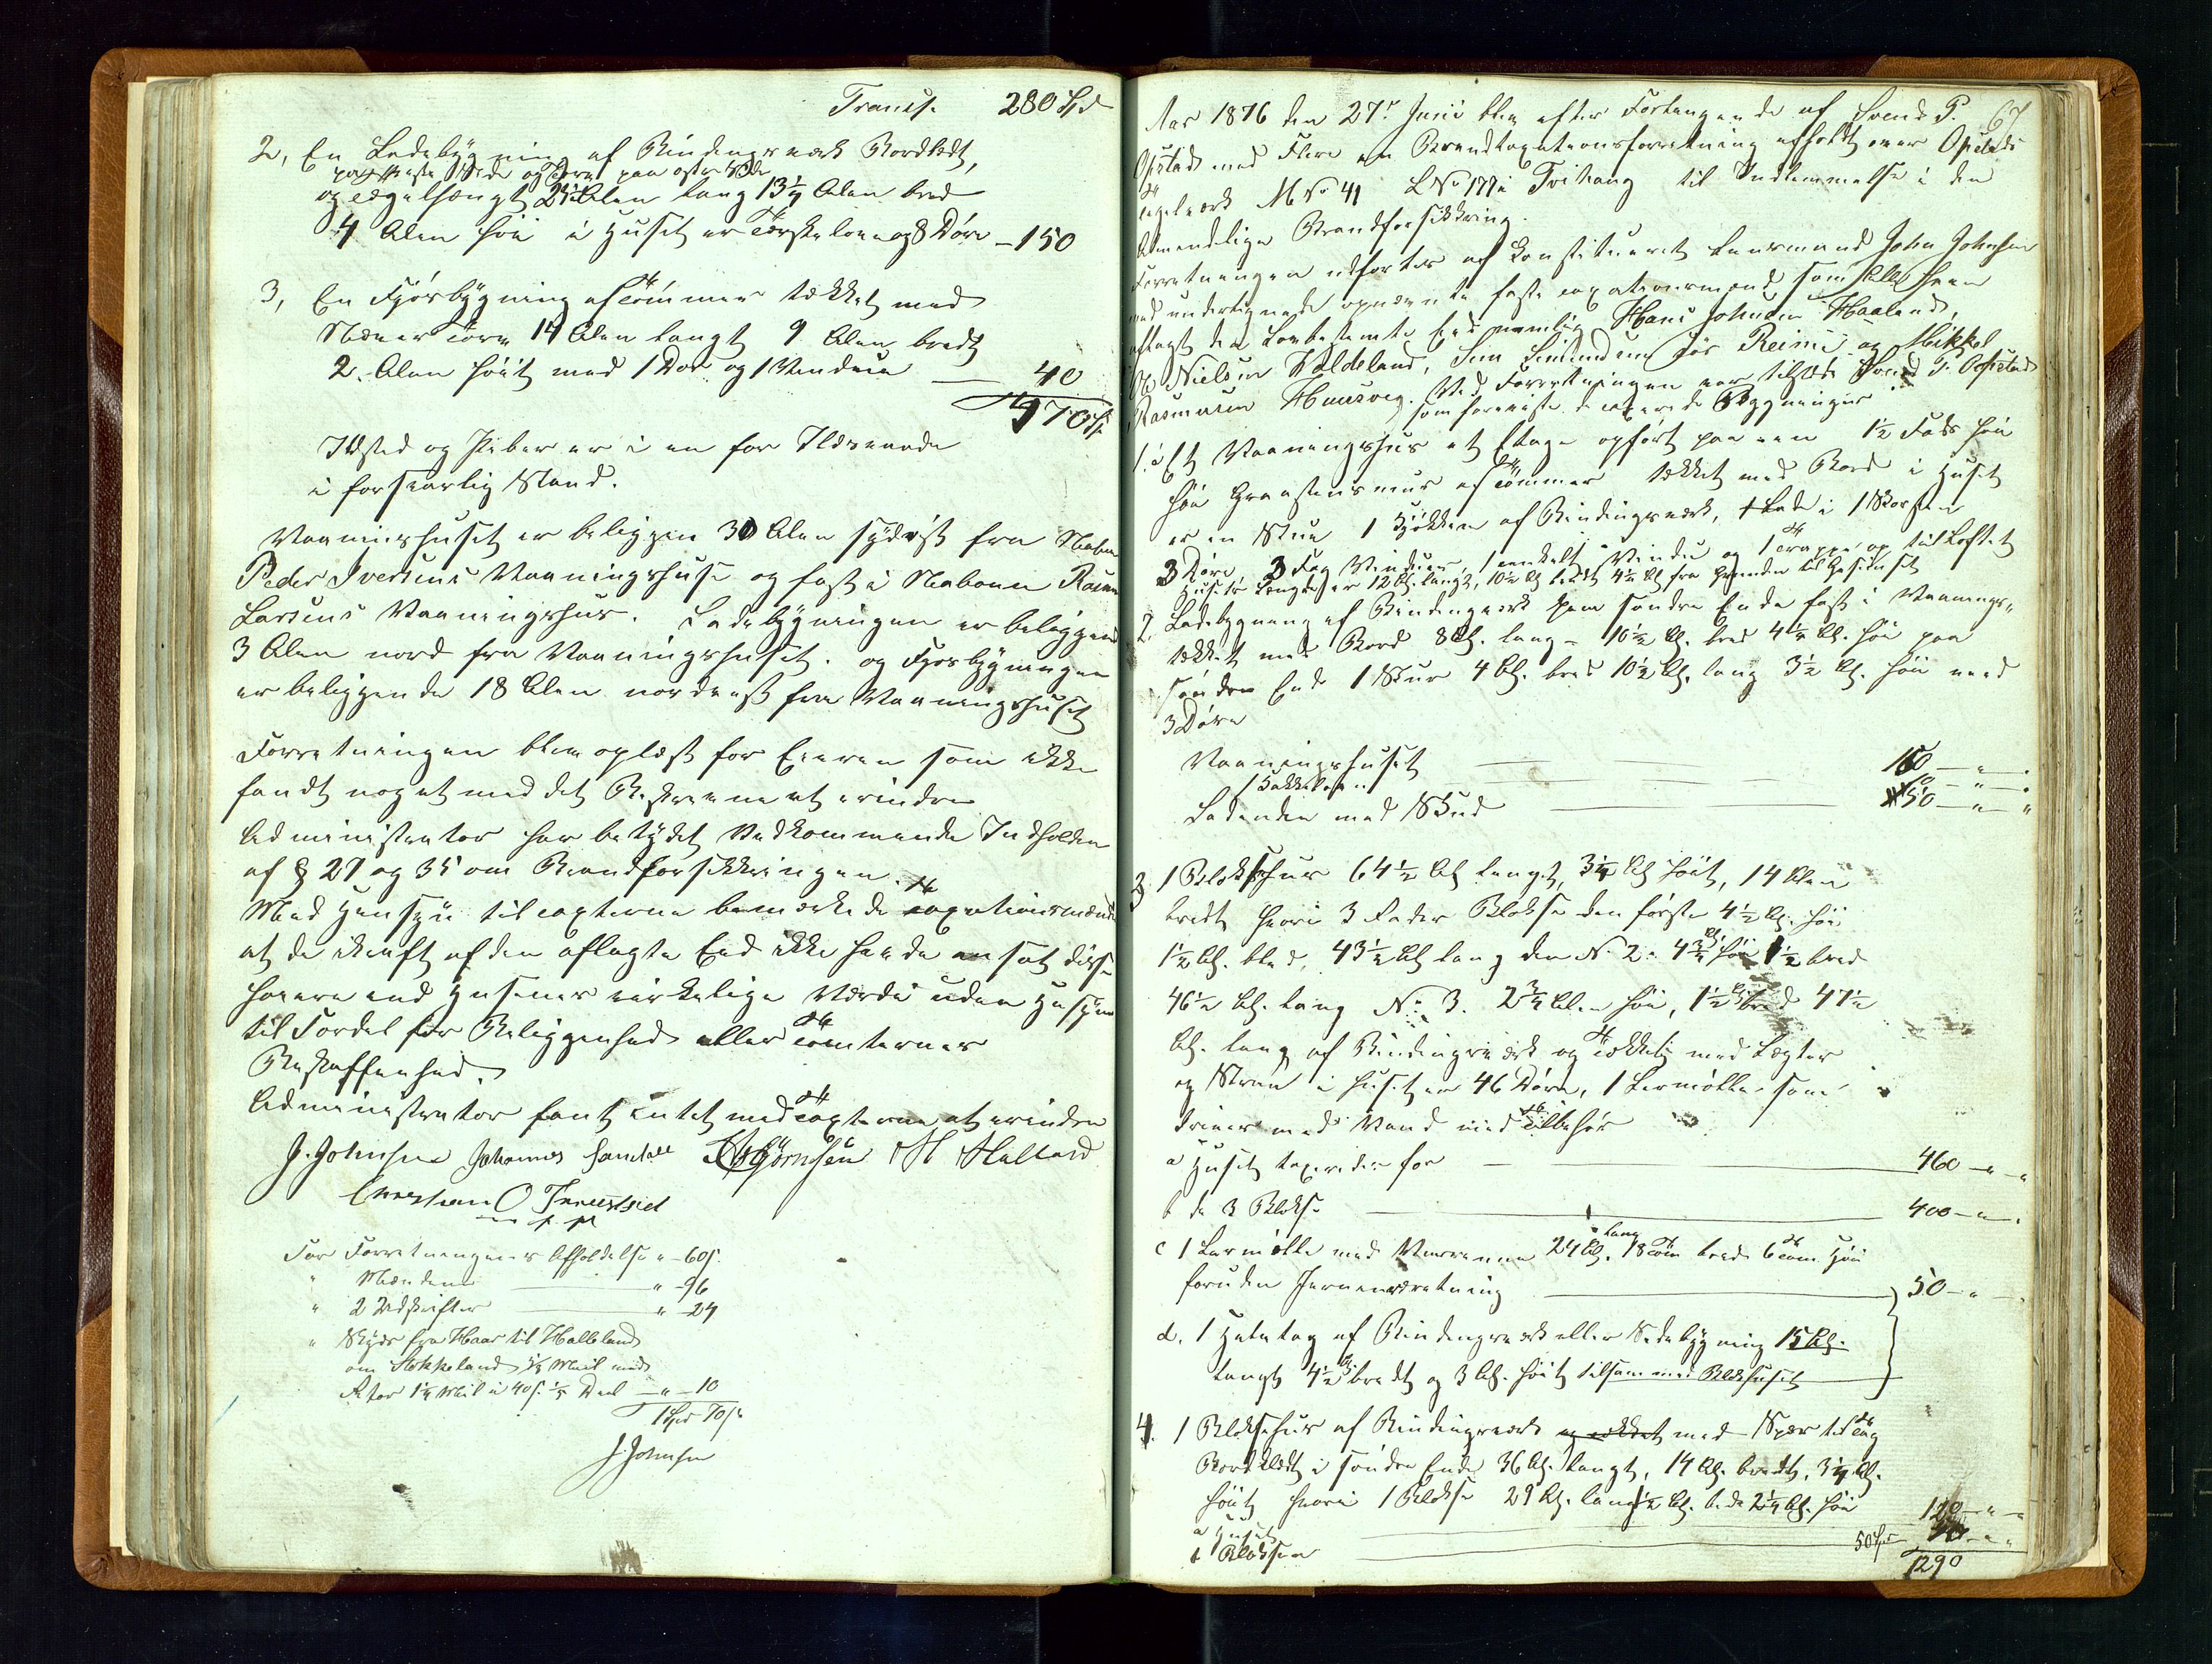 Transp. 280 Spd
2, En Ladebygning af Bindingsværk Bordklædt,
paa Veste Side og Torv paa østre Side
og Tegelhængt 25 Alen lang 13¼ Alen bred
4 Alen høi i Huset er Tærskeloe og 8 Døre – 150
3, En Fjøsbygning af Tømmer tækket med
Næver Torv 14 Alen langt 9 Alen bredt
2 Alen høit med 1 Dør og 1 Vindue — 40
470 Sp
Ildsted og Piber er i en for Ildsvaade
i forsvarlig Stand.
Vaaningshuset er beliggen 30 Alen sydøst fra Naboen
Peder Iversens Vaaningshuse og fast i Naboen Rasmus
Larsens Vaaningshus. Ladebygningen er beliggende
3 Alen nord fra Vaaningshuset. og Fjøsbygningen
er beliggende 18 Alen nordvest fra Vaaningshuset
Forretningen blev oplæst for Eieren som ikke
fandt noget med det Beskrevne at erindre
Administrator har betydet Vedkommende Indholden
af § 27 og 35 om Brandforsikkringen.
Med Hensyn til Taxterne bemærkede Taxationsmændene
at de ikraft af den aflagte Eed ikke havde ansat disse
høiere end Husenes virkelige Værdi uden Hensyn
til Fordel for Beliggenhed eller Tomternes
Beskaffenhed.
Administrator fant intet med Taxterne at erindre
J. Johnsen Johannes Sandve Asbjørnsen
Christian O Tveertsiet
m. f. P.
For Forretningens Afholdelse " – 60 s.
" Mændene — " – 96
" 2 Udskrifter — " – 24
" Skyds fra Haar til Halleland
om Stokkeland ¼ Miil med
Retor 1¼ Miil à 40 s. ⅕ Deel — " – 10
1 Spd 70 s
J. Johnsen
67
Aar 1876 den 27de Juni blev efter Forlangende af Svend P.
Opstad med Flere en Brandtaxationsforretning afholdt over Opstads
Tegelværk M No 41 L No 177 i Tvihaug til Indlemmelse i den
Almindelige Brandforsikkring.
Forretningen udførtes af Konstitueret Lensmand John Johnsen
med undertegnede opnævnte faste Taxationsmænd som alle have
aflagt den Lovbestemte Eed nemlig Hans Johnsen Haaland,
Nielsen Voldeland, Sivert Simundsen Lør Reime og Mikkel
Rasmusen Haarvig. Ved Forretningen var tilstede Svend P. Opstad
som foreviste de Taxerede Bygninger
1. Et Vaaningshus et Etage opført paa en 1½ Fods høi
høi Graastensmur af Tømmer tækket med Bord i Huset
er en Stue 1 Kjøkken af Bindingsværk, 1 Lade i 1 Skorsten
3 Døre 3 Fag Vinduer, 1 enkelt Vindue og 1 Trappe op til Loftet
Husets Længde er 12 Al. langt, 10½ Al bredt 4½ Al fra Grunden til Gesimset
2. Ladebygning af Bindingværk hvis søndre Ende fast i Vaanings"
tækket med Bord 8 Al. lang – 10½ Al. bred 4¼ Al. høi paa
søndre Ende 1 Skur 4 Al. bred 10½ Al. lang 3½ Al. høi med
3 Døre
Vaaningshuset — 160 — " — "
1 Kakkelovn — 10 — " — "
Ladenden med Skud — 50 — " — "
3. 1 Blokshus 64½ Al langt, 3¼ Al høit, 14 Alen
bredt hvori 3 Rader Blokse den første 4½ Al. høi
1½ Al. bred, 43½ Al lang den No 2. 4¾ Al høi 1½ bred
46½ Al. lang No 3. 2¾ Alen høi, 1½ Al bred 47½
Al. lang af Bindingsværk og Tækket med Lægter
og Straa i huset er 46 Døre, 1 Leermølle som
drives med Vand med Tilbehør
a Huset taxeredes for — 460 — " — "
b de 3 Blokse — 400 — " — "
c 1 Leermølle med Vandrenne 24 Al. lang 18 Tom bred 6 Tom Høi
foruden Jernindretning — 50 — " — "
d. 1 Halvtag af Bindingsværk eller Sidebygning 15 Al.
langt 4½ Al bredt og 3 Al. høit tilsammen Blokshuset
4. 1 Blokshus af Bindingsværk og tækket med Spær til Tag
Bordklædt i søndre Ende 36 Al. langt, 14 Al. bredt, 3¼ Al.
høit hvori 1 Blokse 29 Al. lang 1½ Al. bred 2¼ Al. høi
a Huset — 120 — " — "
b Bloksen — 50 Spd
1290